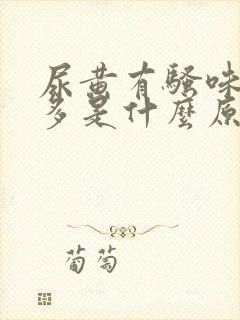 尿黄有騷味
多是什麼原
葡萄